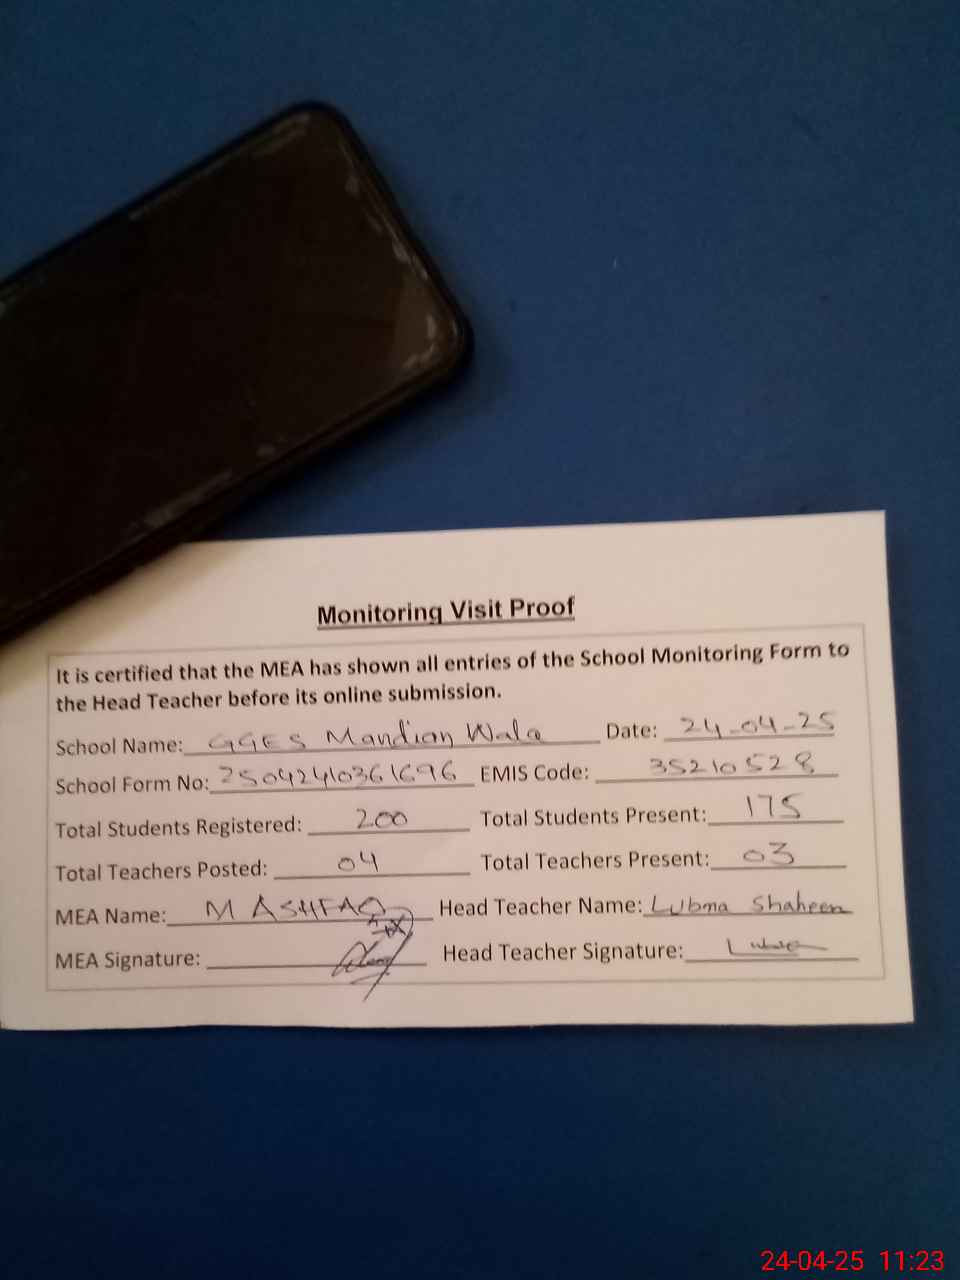 Monitoring Visit Proof
It is certified that the MEA has shown all entries of the School Monitoring Form to
the Head Teacher before its online submission.
School Name: GGES Mandian Wala Date: 24-04-25
School Form No: 25042410361696 EMIS Code: 35210528
Total Students Registered: 200 Total Students Present: 175
Total Teachers Posted: 04 Total Teachers Present: 03
MEA Name: M ASHFAQ Head Teacher Name: Lubma Shaheen
MEA Signature: Head Teacher Signature:
24-04-25 11:23